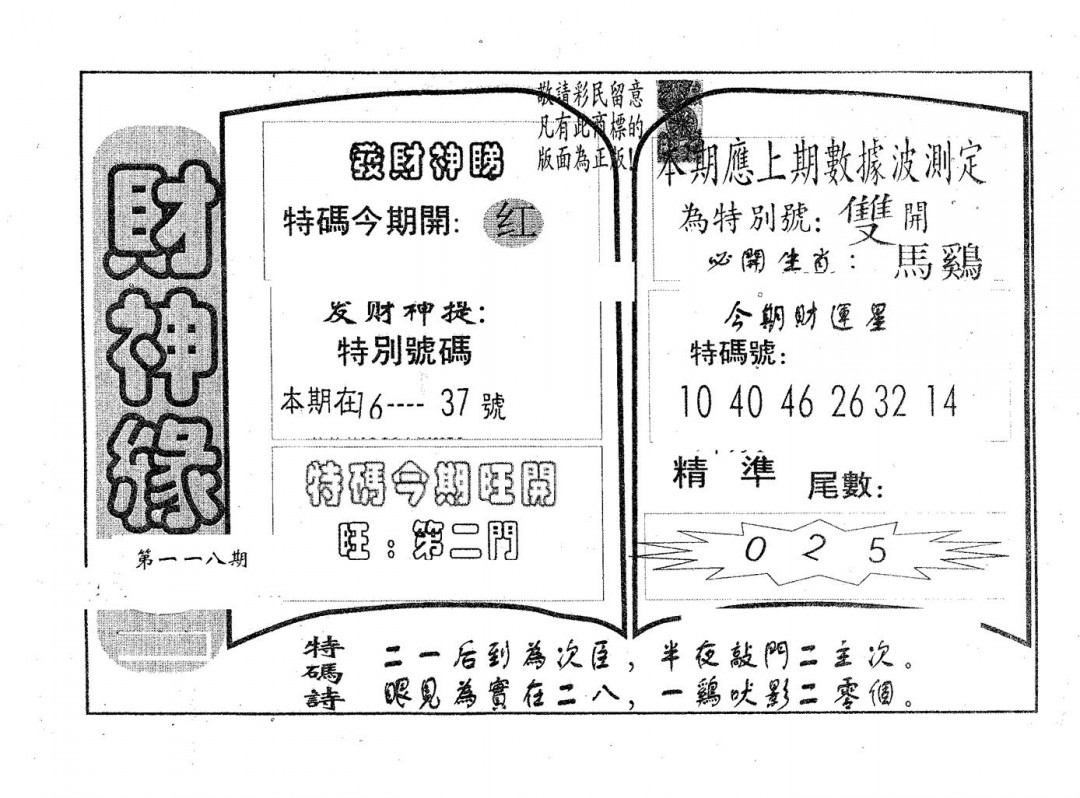 財神緣
第一一八期
敬請彩民留意
凡有此商標的
版面為正版!
發財神賜
特碼今期開: 红
发财神提:
特別號碼
本期在16---- 37 號
特碼今期旺開
旺:第二門
本期應上期數據波測定
為特別號: 雙 開
必開生肖: 馬鷄
今期財運星
特碼號:
10 40 46 26 32 14
精準 尾數:
0 2 5
特碼詩
二一后到為次臣,半夜敲門二主次。
眼見為實在二八,一鷄吠影二零個。